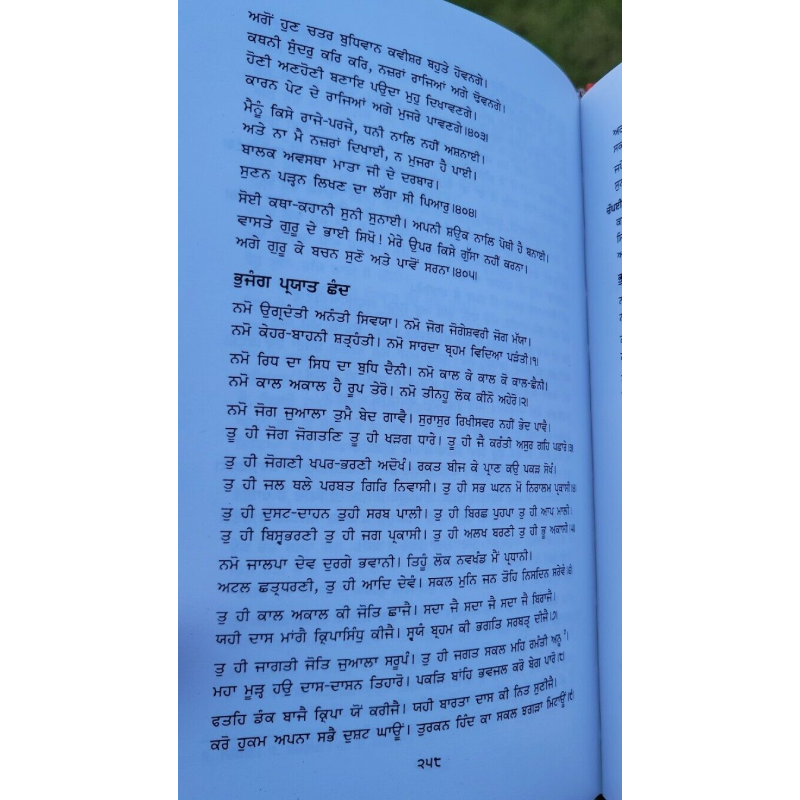 ਅਗੋਂ ਹੁਣ ਚਤਰ ਬੁਧਿਵਾਨ ਕਵੀਸ਼ਰ ਬਹੁਤੇ ਹੋਵਨਗੇ।
ਕਥਨੀ ਸੁੰਦਰ ਕਰਿ ਕਰਿ, ਨਜ਼ਰਾਂ ਰਾਜਿਆਂ ਅਗੇ ਢੋਵਨਗੇ।
ਹੋਣੀ ਅਣਹੋਣੀ ਬਣਾਇ ਪਉਦਾ ਮੁਹੁ ਦਿਖਾਵਣਗੇ।
ਕਾਰਨ ਪੇਟ ਦੇ ਰਾਜਿਆਂ ਅਗੇ ਮੁਜਰੇ ਪਾਵਣਗੇ।੪੦੩।
ਮੈਨੂੰ ਕਿਸੇ ਰਾਜੇ-ਪਰਜੇ, ਧਨੀ ਨਾਲਿ ਨਹੀਂ ਅਸ਼ਨਾਈ।
ਅਤੇ ਨਾ ਮੈ ਨਜ਼ਰਾਂ ਦਿਖਾਈ, ਨ ਮੁਜਰਾ ਹੈ ਪਾਈ।
ਬਾਲਕ ਅਵਸਥਾ ਮਾਤਾ ਜੀ ਦੇ ਦਰਬਾਰ।
ਸੁਣਨ ਪੜ੍ਹਨ ਲਿਖਣ ਦਾ ਲੱਗਾ ਸੀ ਪਿਆਰੁ।੪੦੪।
ਸੋਈ ਕਥਾ-ਕਹਾਨੀ ਸੁਨੀ ਸੁਨਾਈ। ਅਪਨੀ ਸ਼ਉਕ ਨਾਲਿ ਪੋਥੀ ਹੈ ਬਨਾਈ।
ਵਾਸਤੇ ਗੁਰੂ ਦੇ ਭਾਈ ਸਿਖੋ! ਮੇਰੇ ਉਪਰ ਕਿਸੇ ਗੁੱਸਾ ਨਹੀਂ ਕਰਨਾ।
ਅਗੇ ਗੁਰੂ ਕੇ ਬਚਨ ਸੁਣੋ ਅਤੇ ਪਾਵੋਂ ਸਰਨਾ।੪੦੫।
ਭੁਜੰਗ ਪ੍ਰਯਾਤ ਛੰਦ
ਨਮੋ ਉਗ੍ਰਦੰਤੀ ਅਨੰਤੀ ਸਿਵਯਾ। ਨਮੋ ਜੋਗ ਜੋਗੇਸ਼ਵਰੀ ਜੋਗ ਮੱਯਾ।
ਨਮੋ ਕੇਹਰ-ਬਾਹਨੀ ਸ਼ਤ੍ਰਹੰਤੀ। ਨਮੋ ਸਾਰਦਾ ਬ੍ਰਹਮ ਵਿਦਿਆ ਪੜੰਤੀ।੧।
ਨਮੋ ਰਿਧ ਦਾ ਸਿਧ ਦਾ ਬੁਧਿ ਦੈਨੀ। ਨਮੋ ਕਾਲ ਕੇ ਕਾਲ ਕੋ ਕਾਲ-ਛੈਨੀ।
ਨਮੋ ਕਾਲ ਅਕਾਲ ਹੈ ਰੂਪ ਤੇਰੋ। ਨਮੋ ਤੀਨਹੂ ਲੋਕ ਕੀਨੋ ਅਹੇਰੋ।੨।
ਨਮੋ ਜੋਗ ਜੁਆਲਾ ਤੁਮੈ ਬੇਦ ਗਾਵੈ। ਸੁਰਾਸੁਰ ਰਿਖੀਸਵਰ ਨਹੀਂ ਭੇਦ ਪਾਵੈ।
ਤੂ ਹੀ ਜੋਗ ਜੋਗਤਣਿ ਤੂ ਹੀ ਖੜਗ ਧਾਰੇ। ਤੂ ਹੀ ਜੈ ਕਰੰਤੀ ਅਸੁਰ ਗਹਿ ਪਛਾਰੇ।੩।
ਤੁ ਹੀ ਜੋਗਣੀ ਖਪਰ-ਭਰਣੀ ਅਦੋਖੰ। ਰਕਤ ਬੀਜ ਕੇ ਪ੍ਰਾਣ ਕਉ ਪਕੜ ਸੋਖੰ।
ਤੁ ਹੀ ਜਲ ਥਲੇ ਪਰਬਤ ਗਿਰਿ ਨਿਵਾਸੀ। ਤੁ ਹੀ ਸਭ ਘਟਨ ਮੋ ਨਿਰਾਲਮ ਪ੍ਰਕਾਸੀ।੪।
ਤੁ ਹੀ ਦੁਸਟ-ਦਾਹਨ ਤੁਹੀ ਸਰਬ ਪਾਲੀ। ਤੁ ਹੀ ਬਿਰਛ ਪੁਹਪਾ ਤੁ ਹੀ ਆਪ ਮਾਲੀ।
ਤੁ ਹੀ ਬਿਸ੍ਵਭਰਣੀ ਤੁ ਹੀ ਜਗ ਪ੍ਰਕਾਸੀ। ਤੁ ਹੀ ਅਲਖ ਬਰਣੀ ਤੁ ਹੀ ਭੂ ਅਕਾਸੀ।੫।
ਨਮੋ ਜਾਲਪਾ ਦੇਵ ਦੁਰਗੇ ਭਵਾਨੀ। ਤਿਹੂੰ ਲੋਕ ਨਵਖੰਡ ਮੈਂ ਪ੍ਰਧਾਨੀ।
ਅਟਲ ਛਤ੍ਰਧਰਣੀ, ਤੁ ਹੀ ਆਦਿ ਦੇਵੰ। ਸਕਲ ਮੁਨਿ ਜਨ ਤੋਹਿ ਨਿਸਦਿਨ ਸਰੇਵੰ।੬।
ਤੁ ਹੀ ਕਾਲ ਅਕਾਲ ਕੀ ਜੋਤਿ ਛਾਜੈ। ਸਦਾ ਜੈ ਸਦਾ ਜੈ ਸਦਾ ਜੈ ਬਿਰਾਜੈ।
ਯਹੀ ਦਾਸ ਮਾਂਗੈ ਕ੍ਰਿਪਾਸਿੰਧੁ ਕੀਜੈ। ਸ੍ਵਯੰ ਬ੍ਰਹਮ ਕੀ ਭਗਤਿ ਸਰਬਤ੍ਰ ਦੀਜੈ।੭।
ਤੁ ਹੀ ਜਾਗਤੀ ਜੋਤਿ ਜੁਆਲਾ ਸਰੂਪੰ। ਤੁ ਹੀ ਜਗਤ ਸਕਲ ਮਹਿ ਰਮੰਤੀ
ਮਹਾ ਮੂੜ੍ਹ ਹਉ ਦਾਸ-ਦਾਸਨ ਤਿਹਾਰੋ। ਪਕੜਿ ਬਾਂਹਿ ਭਵਜਲ ਕਰੋ ਬੇਗ ਪਾਰੋ।੮।
ਫਤਹਿ ਡੰਕ ਬਾਜੈ ਕ੍ਰਿਪਾ ਯੋਂ ਕਰੀਜੈ। ਯਹੀ ਬਾਰਤਾ ਦਾਸ ਕੀ ਨਿਤ ਸੁਣੀਜੈ।
ਕਰੋ ਹੁਕਮ ਅਪਨਾ ਸਭੈ ਦੁਸ਼ਟ ਘਾਊਂ। ਤੁਰਕਨ ਹਿੰਦ ਕਾ ਸਕਲ ਝਗੜਾ ਮਿਟਾਊਂ।੯।
੨੫੮